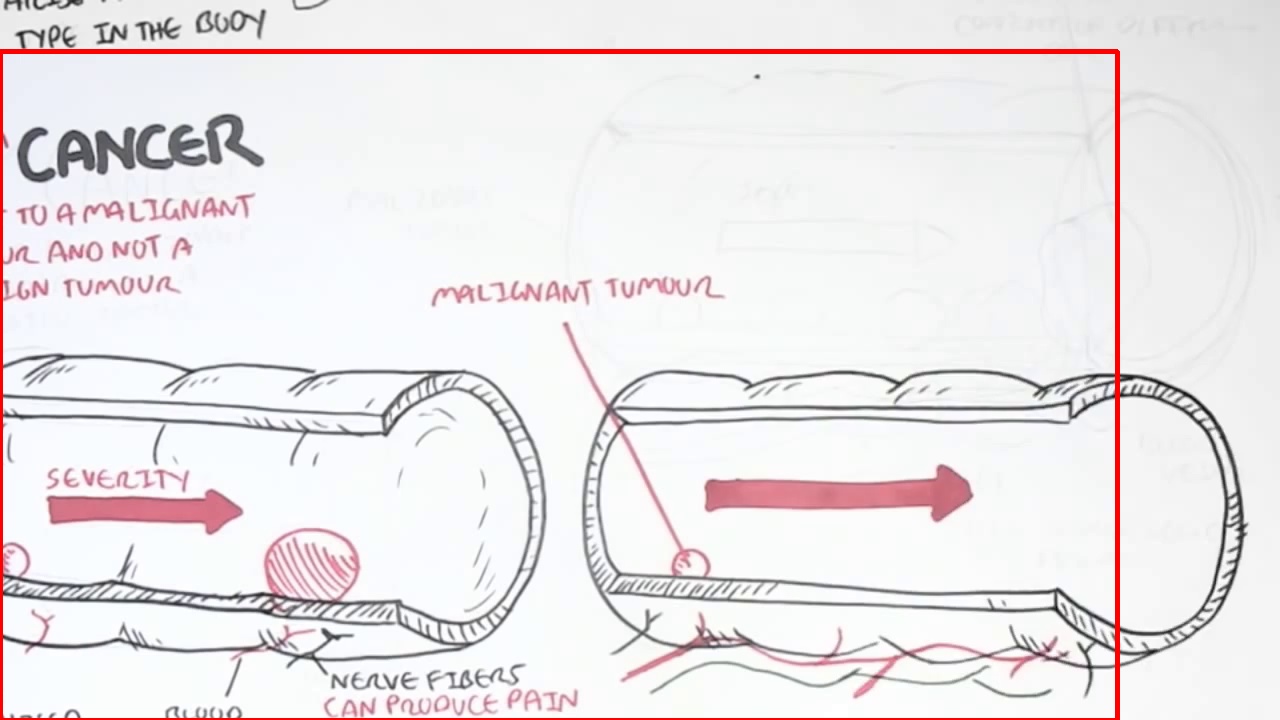 TYPE IN THE BODY
CANCER
TO A MALIGNANT
UR AND NOT A
IGN TUMOUR
MALIGNANT TUMOUR
SEVERITY
NERVE FIBERS
CAN PRODUCE PAIN
BLOOD